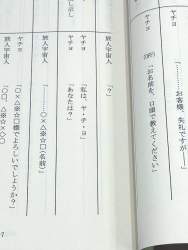 ヤチヨ 「……お客様、失礼ですが」
ヤチヨ 「お名前を、口頭で教えてください」
旅人宇宙人 「？」
し示し
ヤチヨ 「私は、ヤ・チ・ヨ」
ヤチヨ 「あなたは？」
旅人宇宙人 「……○×△※☆□（名前）」
ヤチヨ 「○×△※☆□様でよろしいでしょうか？」
旅人宇宙人 「○□、△※☆×◇」
7